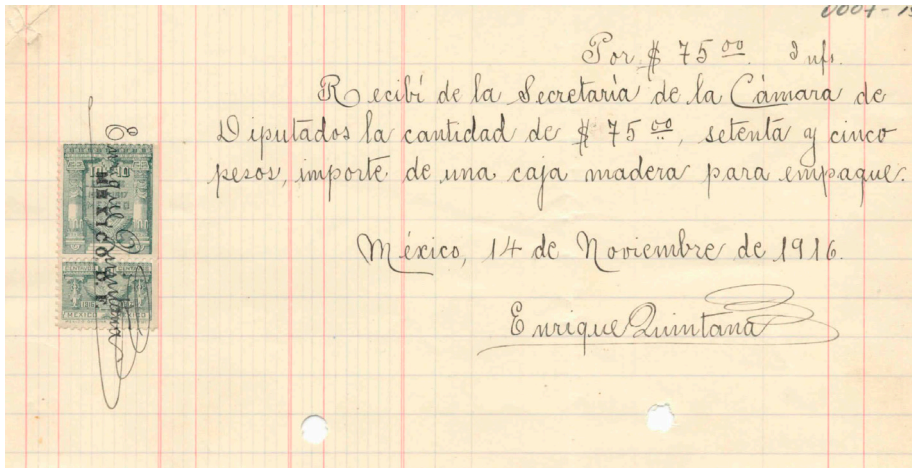 Por $ 75 00. Infs.
Recibí de la Secretaría de la Cámara de
Diputados la cantidad de $ 75 00, setenta y cinco
pesos, importe de una caja madera para empaque.
México, 14 de Noviembre de 1916.
Enrique Quintana
Enrique Quintana
MEXICO D.F.
MEXICO